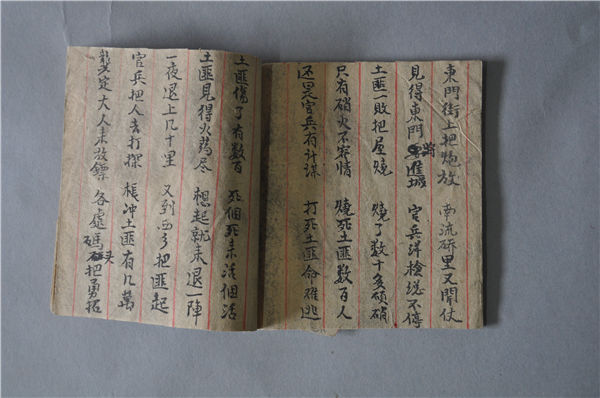 東門街上把炮放 南流硚里又開仗
見得東門將進城 官兵洋槍总不停
土匪一敗把屋燒 燒了数十多硕硝
只有硝火不容情 燒死土匪數百人
还是官兵有计谋 打死土匪命难逃
土匪傷了有数百 死個死来活個活
土匪見得火药尽 想起就来退一陣
一夜退上几十里 又到西乡把匪起
官兵把人去打探 樟冲土匪有几萬
龔定大人来放鏢 各處碼头把勇招